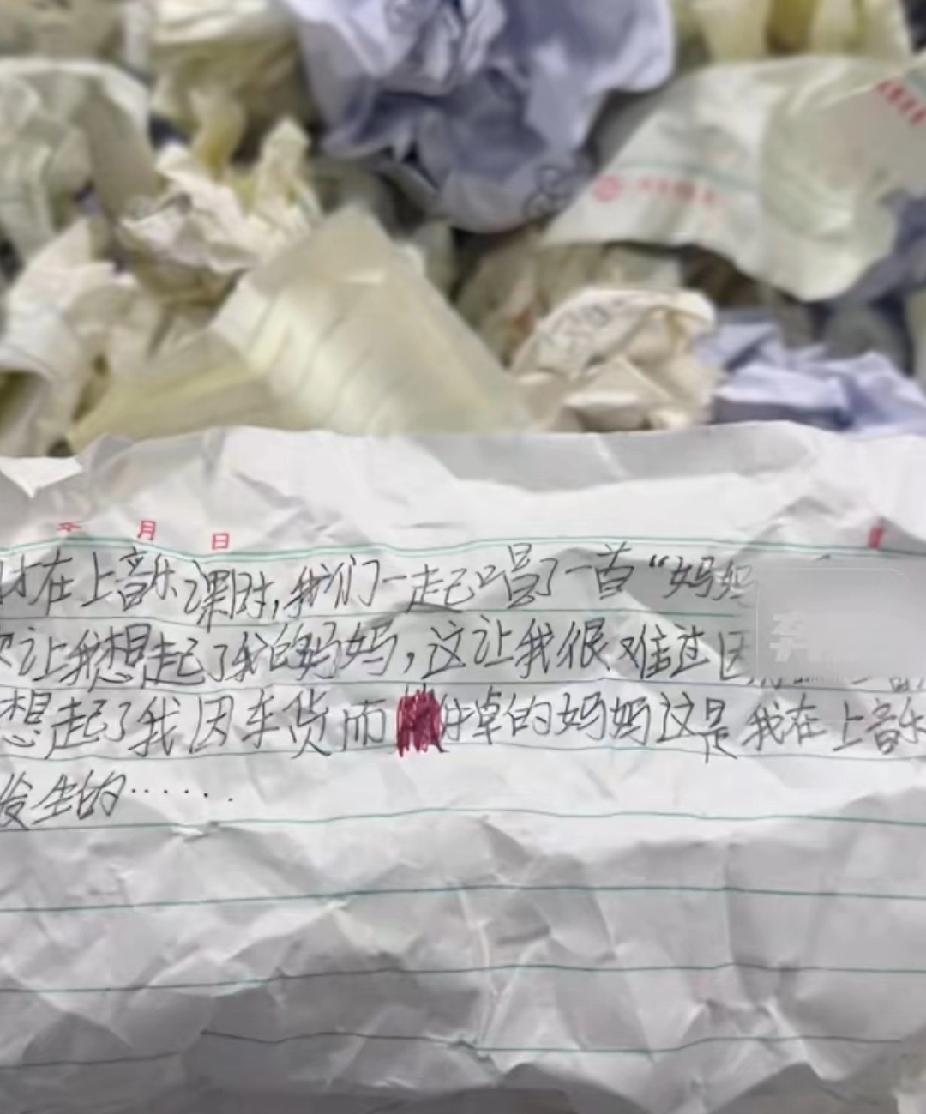 月 日
在上音乐课时,我们一起唱了一首“妈妈
让我想起了我的妈妈,这让我很难过因
想起了我因车货而掉的妈妈这是我在上音乐
发生的……